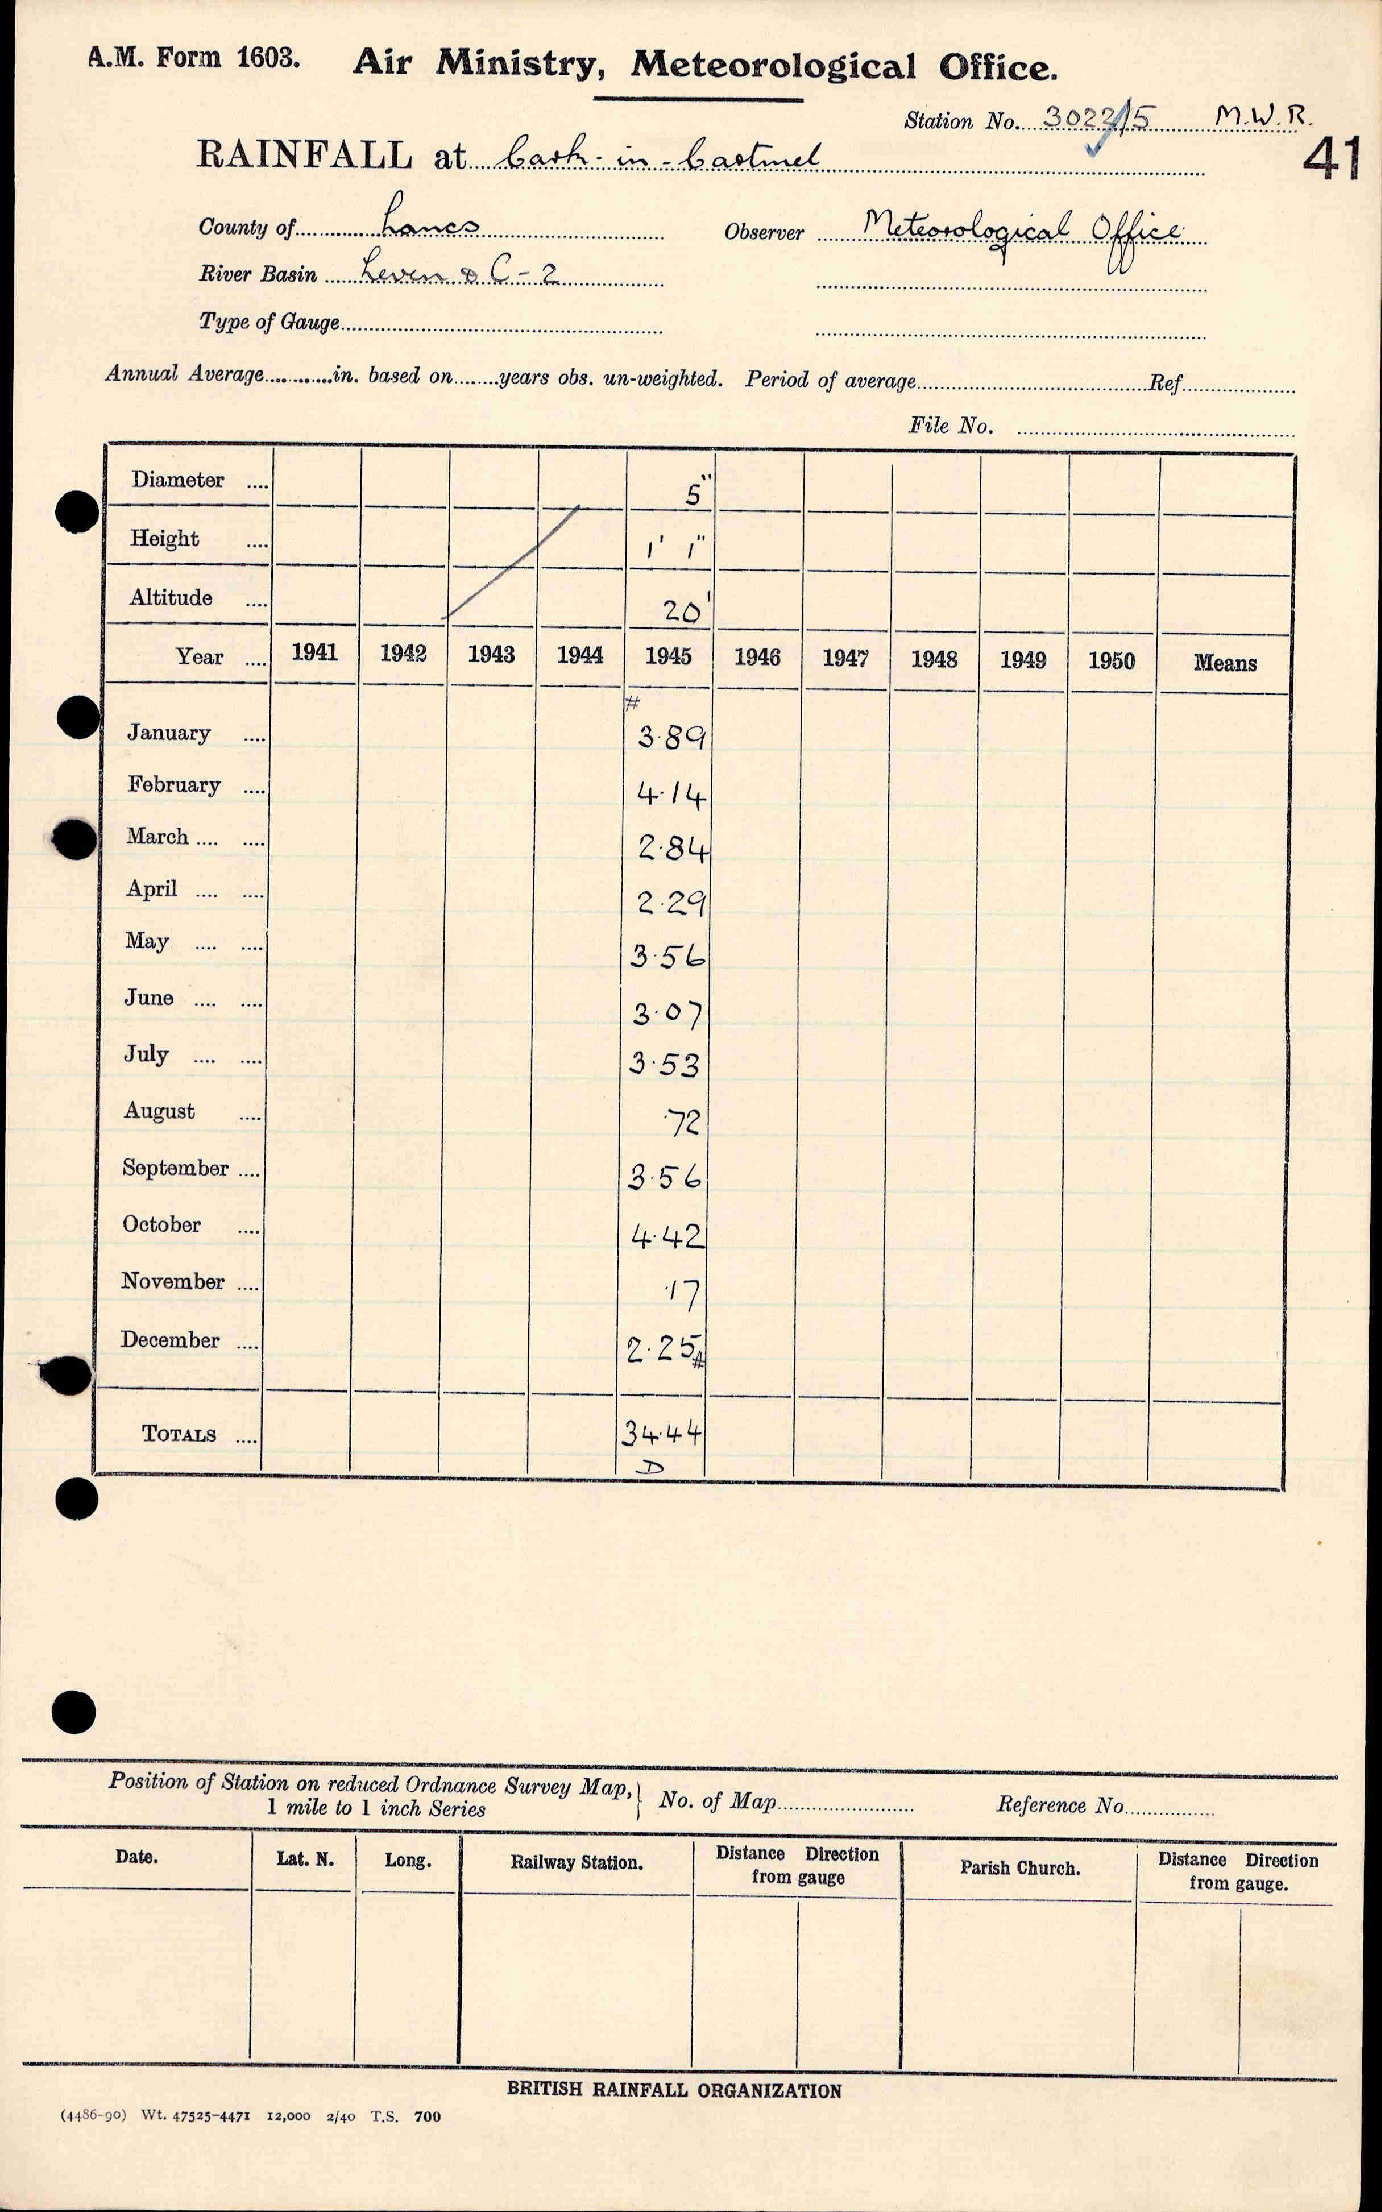 A.M. Form 1603. Air Ministry, Meteorological Office.
Station No. 3022/5 M.W.R.
41
RAINFALL at Cark-in-Cartmel
County of Lancs Observer Meteorological Office
River Basin Leven & C - 2
Type of Gauge
Annual Average............in. based on........years obs. un-weighted. Period of average Ref
File No.
Diameter .... 5"
Height .... 1' 1"
Altitude .... 20'
Year .... 1941 1942 1943 1944 1945 1946 1947 1948 1949 1950 Means
#
January .... 3.89
February .... 4.14
March .... .... 2.84
April .... .... 2.29
May .... .... 3.56
June .... .... 3.07
July .... .... 3.53
August .... .72
September .... 3.56
October .... 4.42
November .... .17
December .... 2.25#
TOTALS .... 34.44
D
Position of Station on reduced Ordnance Survey Map, } No. of Map Reference No
1 mile to 1 inch Series
Date. Lat. N. Long. Railway Station. Distance Direction from gauge Parish Church. Distance Direction from gauge.
BRITISH RAINFALL ORGANIZATION
(4486-90) Wt. 47525-4471 12,000 2/40 T.S. 700